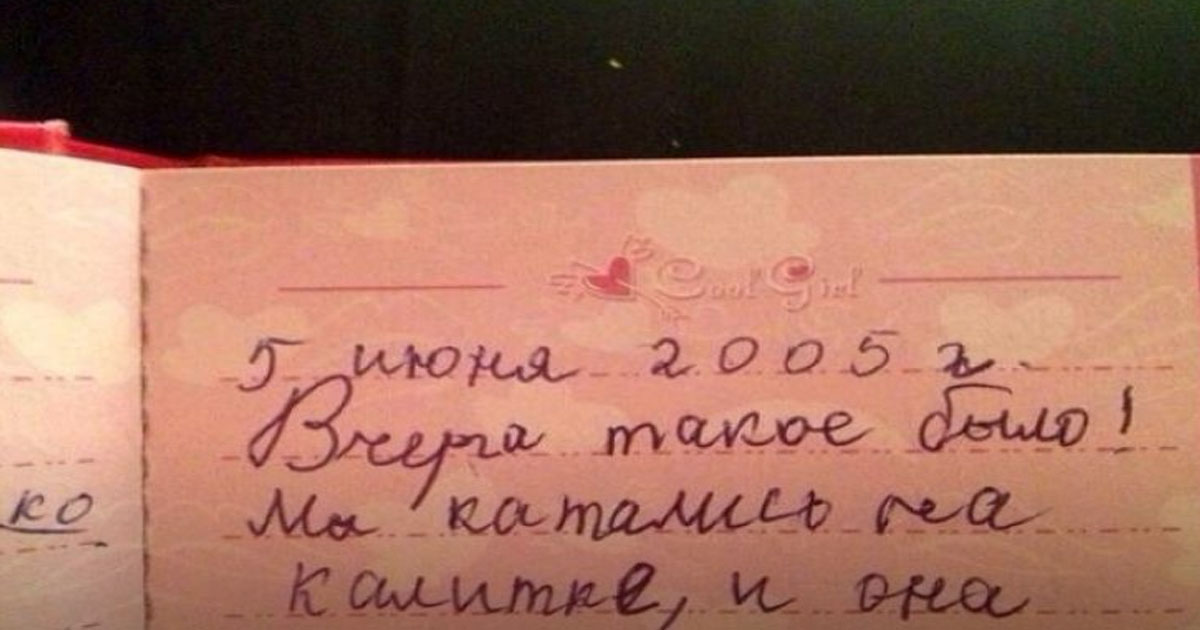 Cool Girl
5 июня 2005 г.
Вчера такое было!
Мы катались на
ко
калитке, и она